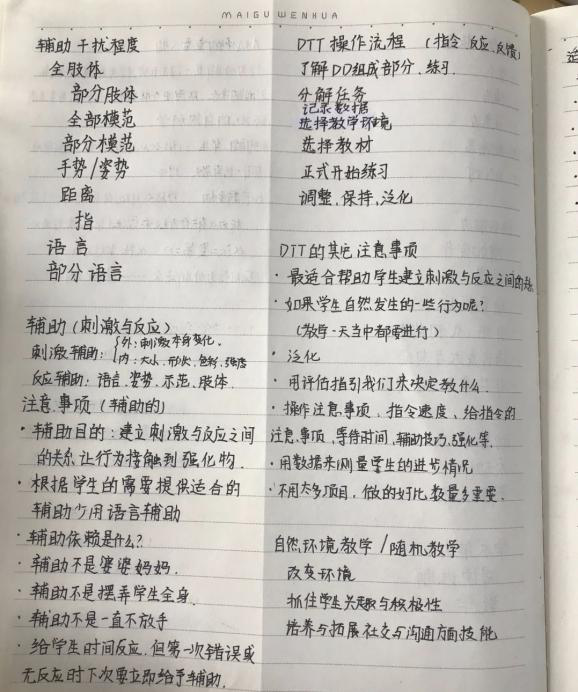 MAIGU WENHUA
辅助干扰程度
全肢体
部分肢体
全部模范
部分模范
手势/姿势
距离
指
语言
部分语言
辅助(刺激与反应)
刺激辅助:
外:刺激本身变化.
内:大小、形状、色彩、强度
反应辅助:语言.姿势.示范.肢体.
注意事项(辅助的)
·辅助目的:建立刺激与反应之间
的关系让行为接触到强化物.
·根据学生的需要提供适合的
辅助少用语言辅助
·辅助依赖是什么?
·辅助不是婆婆妈妈.
·辅助不是摆弄学生全身.
·辅助不是一直不放手
·给学生时间反应.但第一次错误或
无反应时下次要立即给予辅助.
DTT操作流程 (指令.反应.反馈)
了解DD组成部分.练习.
分解任务
记录数据
选择教学环境
选择教材
正式开始练习
调整.保持.泛化
DTT的其它注意事项
·最适合帮助学生建立刺激与反应之间的
·如果学生自然发生的一些行为呢?
(教学一天当中都要进行)
·泛化
·用评估指引我们来决定教什么.
·操作注意事项、指令速度、给指令的
注意事项、等待时间、辅助技巧、强化等.
·用数据来测量学生的进步情况
·不用太多项目,做的好比数量多重要.
自然环境教学/随机教学
改变环境
抓住学生兴趣与积极性
培养与拓展社交与沟通方面技能